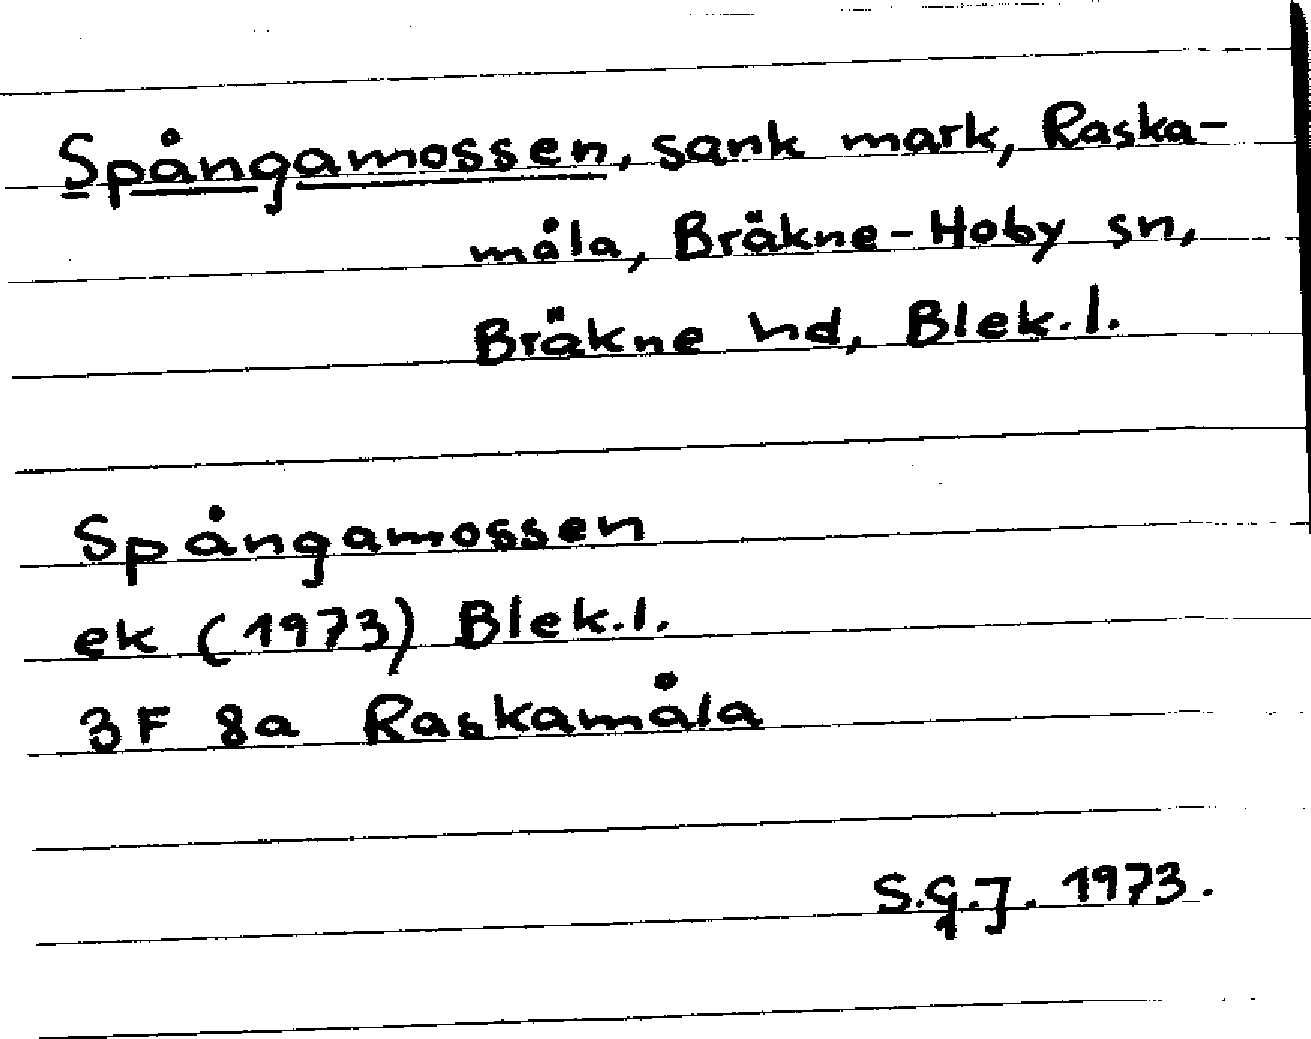 Spångamossen, sank mark, Raska-
måla, Bräkne-Hoby sn,
Bräkne hd, Blek.l.
Spångamossen
ek (1973) Blek.l.
3F 8a Raskamåla
S.G.J. 1973.